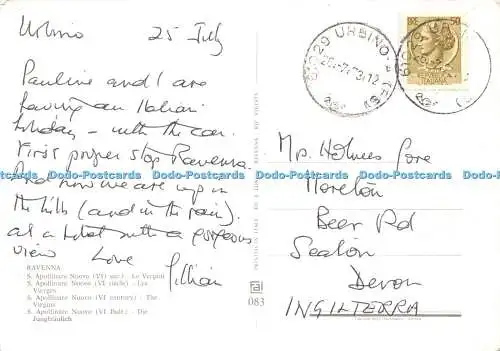 Urbino 25 July
Pauline and I are
having an Italian
holiday - with the car.
First proper stop Ravenna.
And now we are up in
the hills (and in the rain).
at a hotel with a gorgeous
view Love
Gillian
RAVENNA
S. Apollinare Nuovo (VI sec.) - Le Vergini
S. Apollinare Nuovo (VI siècle) - Les
Vierges
S. Apollinare Nuovo (VI century) - The
Virgins
S. Apollinare Nuovo (VI Jhdt.) - Die
Jungfräulich
083
61029 URBINO
50
Mrs. Holmes Gore
Moreton
Beer Rd
Seaton
Devon
INGILTERRA
Dodo-Postcards Dodo-Postcards Dodo-Postcards Dodo-Postcards Dodo-Postcards